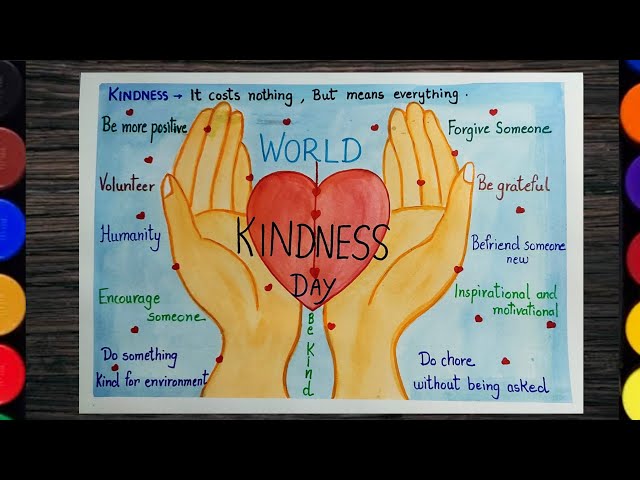 KINDNESS → It costs nothing, But means everything.
Be more positive
Volunteer
Humanity
Encourage
someone
Do something
kind for environment
WORLD
KINDNESS
DAY
Be Kind
Forgive Someone
Be grateful
Befriend someone
new
Inspirational and
motivational
Do chore
without being asked